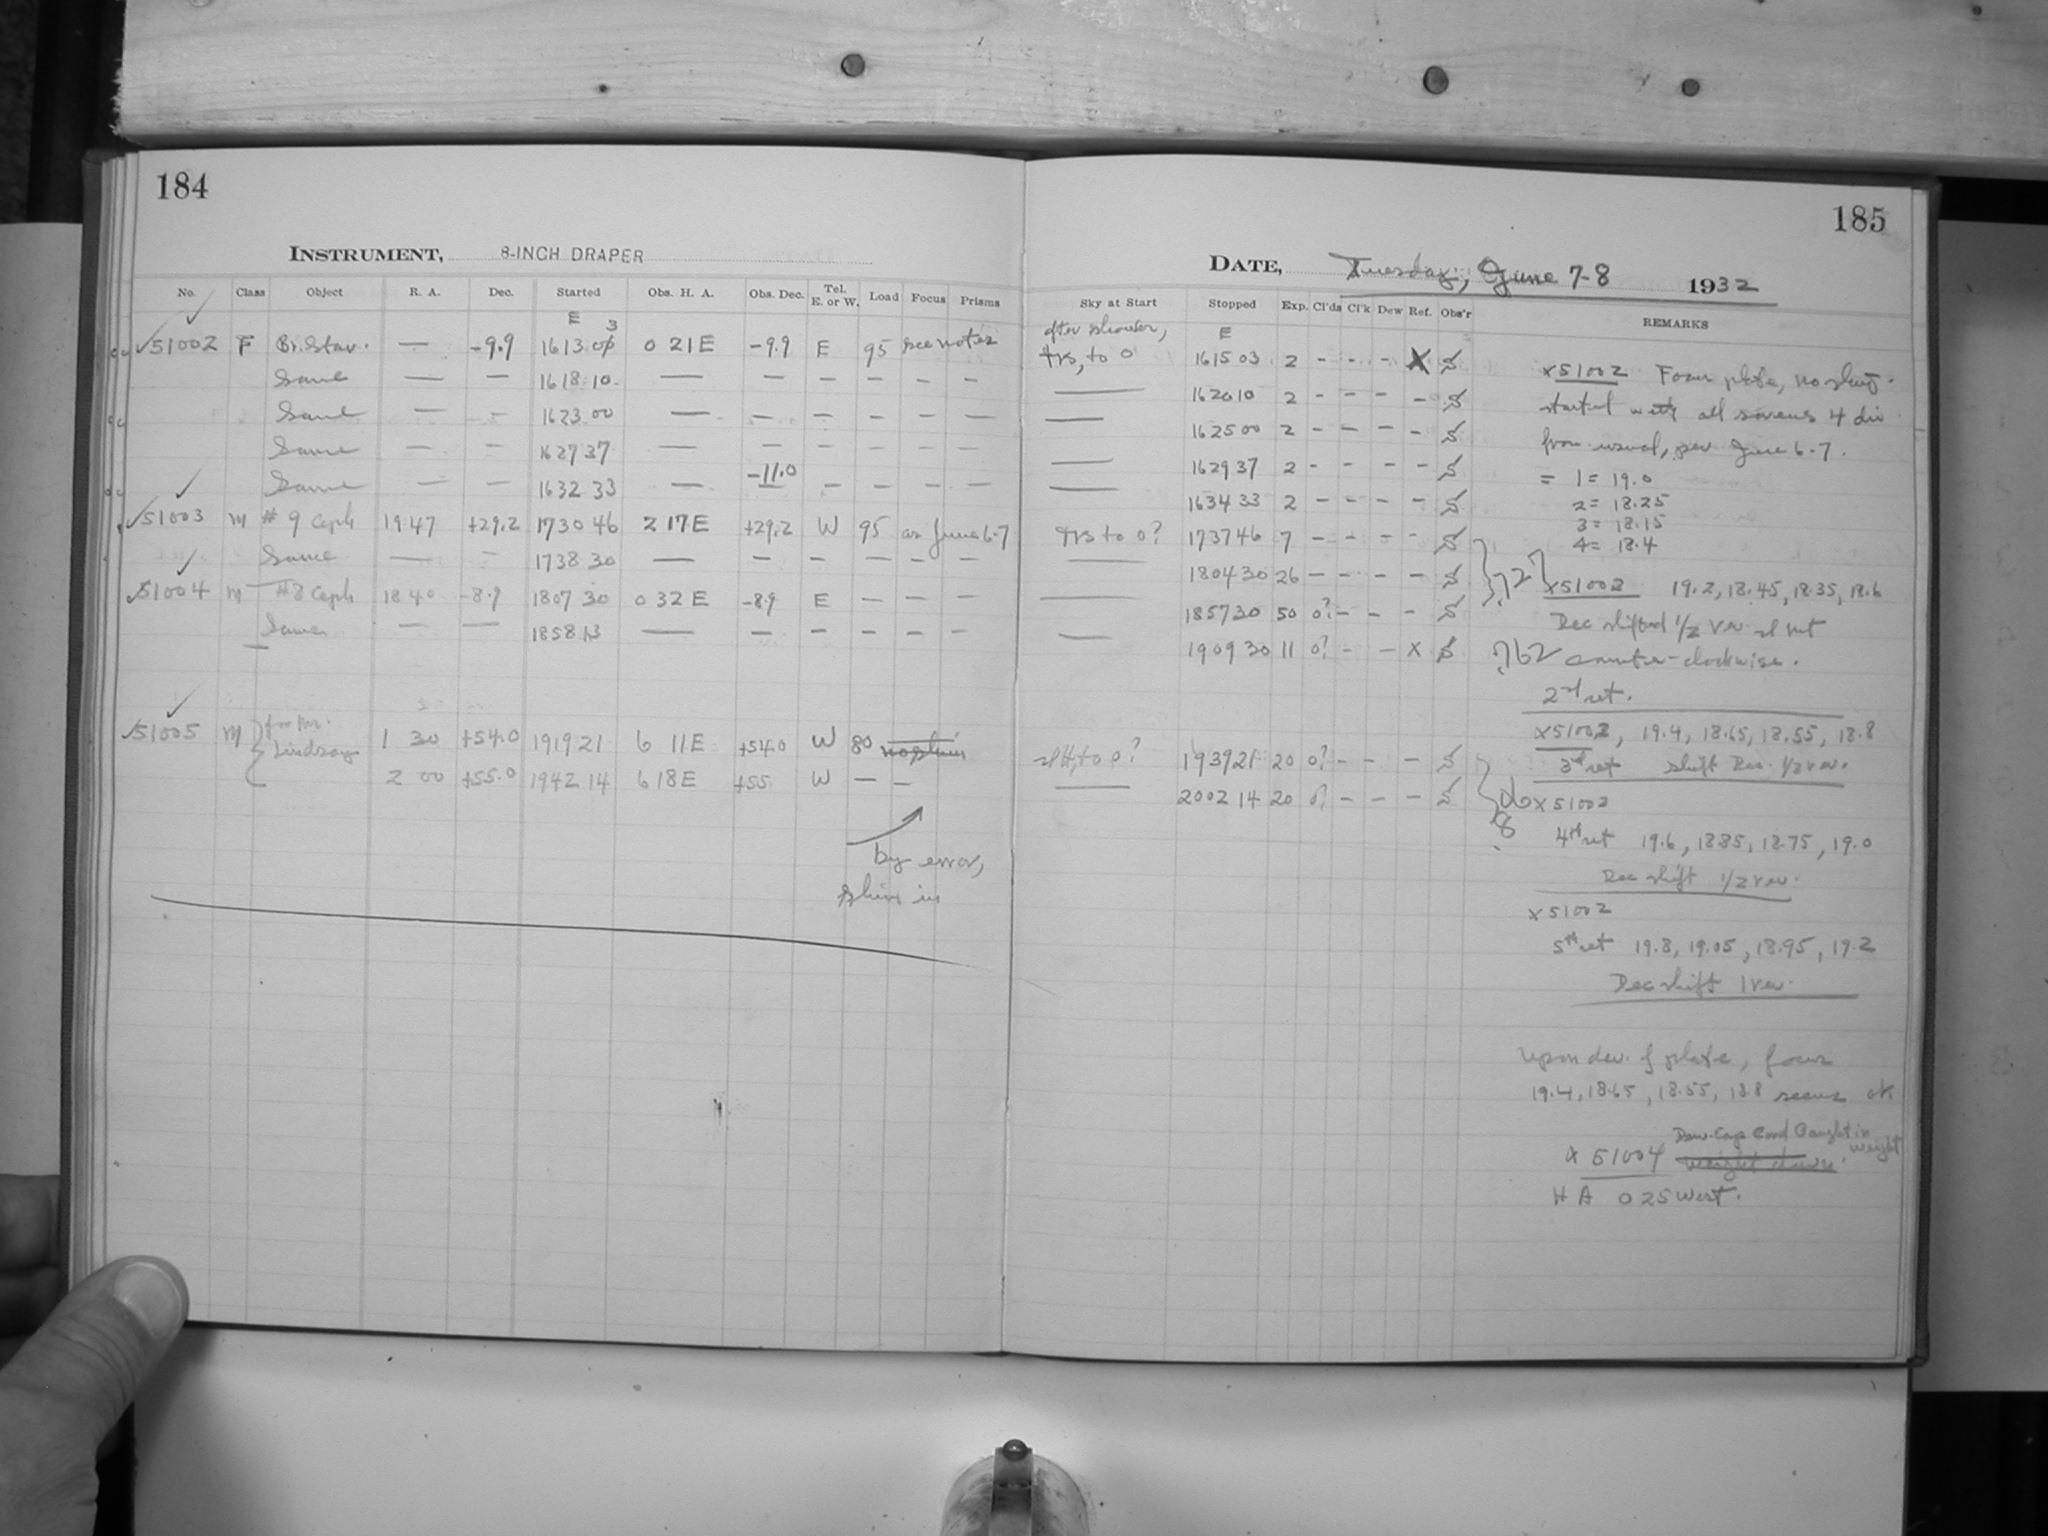 184
INSTRUMENT, 8-INCH DRAPER
No. Class Object R. A. Dec. Started Obs. H. A. Obs. Dec. Tel. E. or W. Load Focus Prisms
E 3
51002 F Br. Star. — -9.9 1613 0 21 E -9.9 E 95 see notes
Same — — 1618 10 — — — — — —
Same — — 1623 00 — — — — — —
Same — — 1627 37 — — — — — —
Same — — 1632 33 — -11.0 — — — —
51003 M # 9 Ceph 19 47 +29.2 1730 46 2 17 E +29.2 W 95 as June 6-7
Same — — 1738 30 — — — — — —
51004 M #8 Ceph 18 40 -8.9 1807 30 0 32 E -8.9 E — — —
Same — — 1858 13 — — — — — —
51005 M for Mr. Lindsay 1 30 +54.0 1919 21 6 11 E +54.0 W 80
2 00 +55.0 1942 14 6 18 E +55 W — —
by error,
shim in
185
DATE, Tuesday, June 7-8 1932
Sky at Start Stopped Exp. Cl'ds Cl'k Dew Ref. Obs'r REMARKS
after shower, E
trs, to 0 1615 03 2 - - - X S
— 1620 10 2 - - - - S
— 1625 00 2 - - - - S
— 1629 37 2 - - - - S
— 1634 33 2 - - - - S
trs to 0? 1737 46 7 - - - - S
— 1804 30 26 - - - - S
— 1857 30 50 0? - - - S
— 1909 30 11 0? - - X S
to 0? 1939 21 20 0? - - - S
— 2002 14 20 0? - - - S
x 51002 Focus plate, no
started with all screws 4 div
from usual, per June 6-7.
= 1 = 19.0
2 = 18.25
3 = 18.15
4 = 18.4
x 51002 19.2, 18.45, 18.35, 18.6
Dec shifted 1/2 rev.
counter-clockwise.
2nd set.
x 51002, 19.4, 18.65, 18.55, 18.8
3rd set shift Dec. 1/2 rev.
x 51002
4th set 19.6, 18.85, 18.75, 19.0
Dec shift 1/2 rev.
x 51002
5th set 19.8, 19.05, 18.95, 19.2
Dec shift 1 rev.
Upon dev. of plate, four
19.4, 18.65, 18.55, 18.8 seems ok
Dew-Cap Cord Caught in
x 51004 weight
H A 0 25 West.